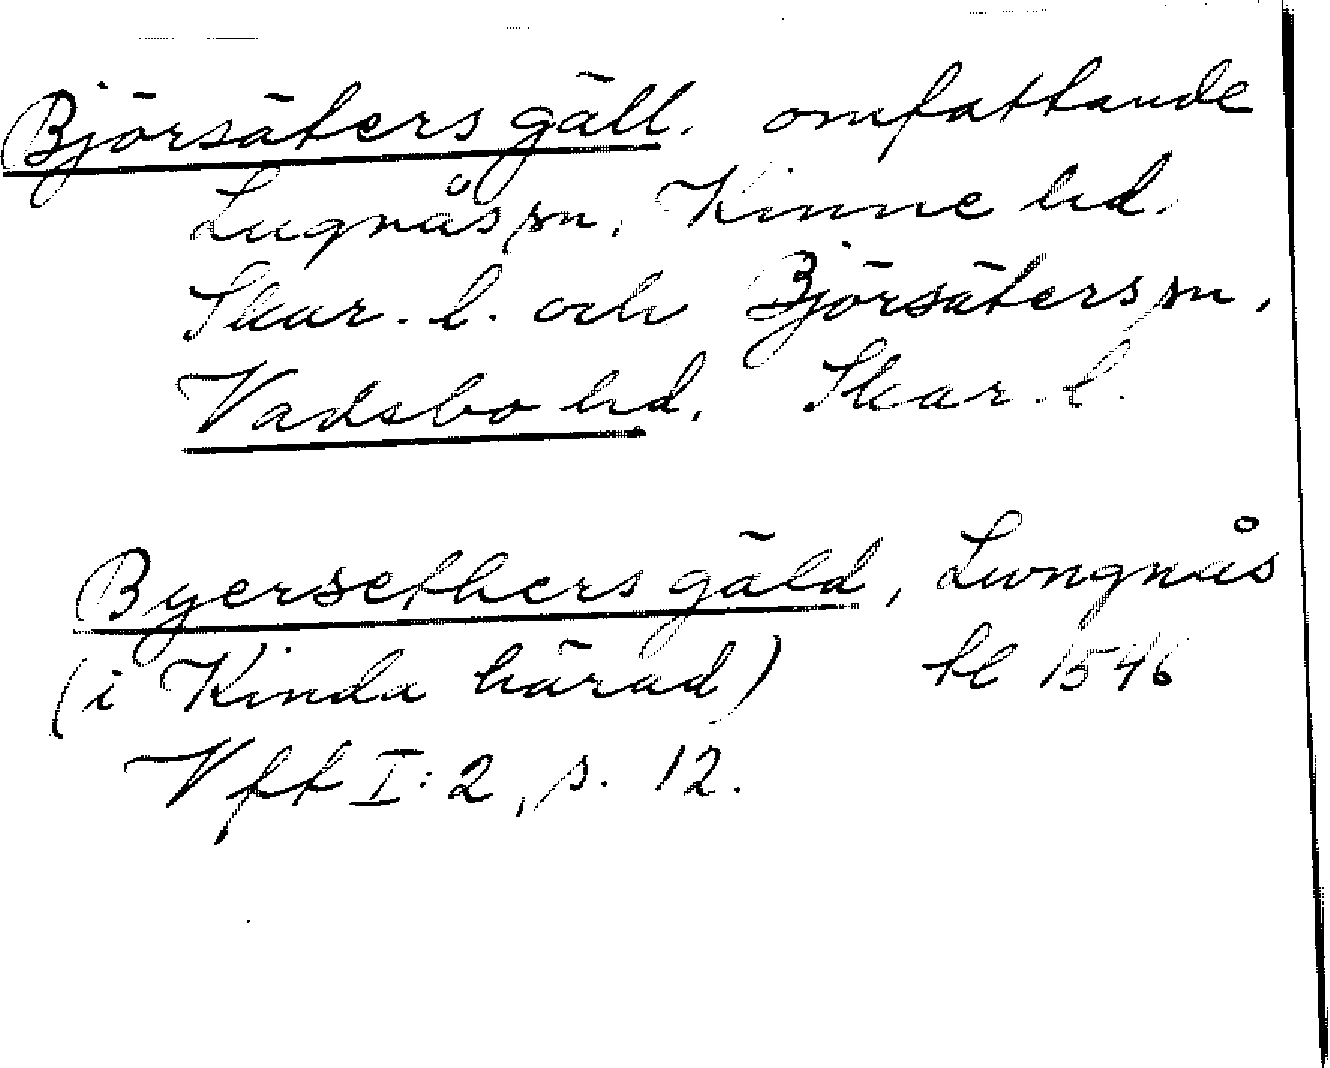 Björsäters gäll. omfattande
Lugnås sn, Kinne hd.
Skar. l. och Björsäters sn,
Vadsbo hd. Skar. l.
Byersethers gäld, Lwngnås
(i Kinda härad) tl 1546
Vfft I:2, s. 12.